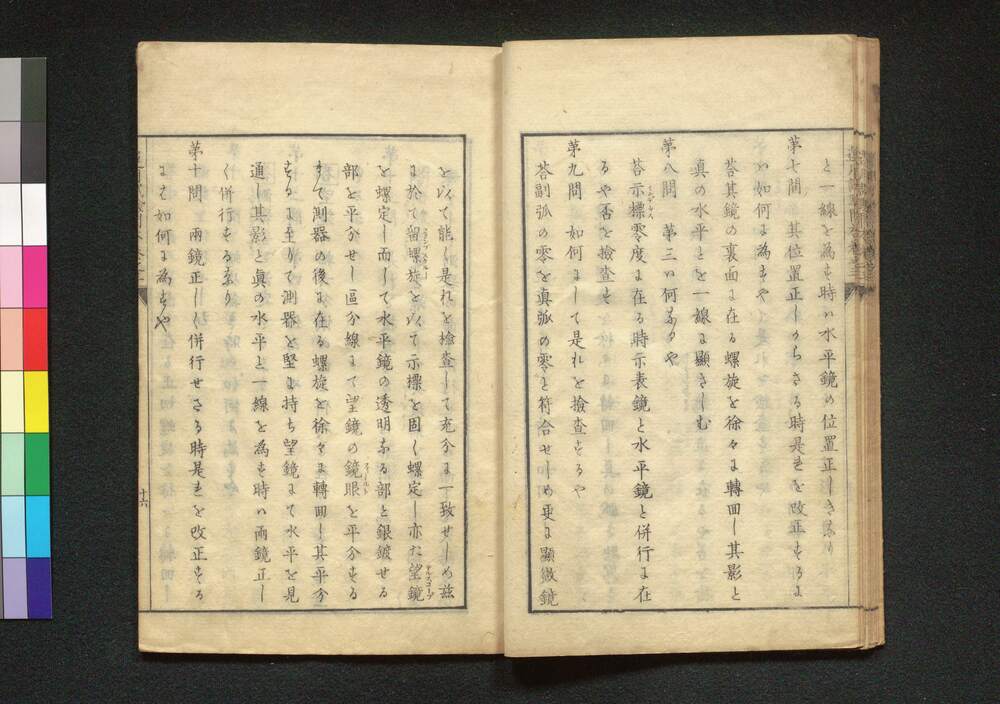 と一線を為す時ハ水平鏡の位置正しきなり
第七問　其位置正しからさる時是れを改正するに
ハ如何に為すや
答其鏡の裏面に在る螺旋を徐々に轉回し其影と
真の水平とを一線に顯さしむ
第八問　第三ハ何なるや
答示標零度に在る時示表鏡と水平鏡と併行に在
るや否を撿査す
第九問　如何にして是れを撿査するや
答副弧の零を真弧の零と符合せしめ更に顯微鏡
を以て能く是れを撿査して充分に一致せしめ茲
に於て留螺旋を以て示標を固く螺定し亦た望鏡
を螺定し而して水平鏡の透明なる部と銀鍍せる
部を平分せし區分線にて望鏡の鏡眼を平分する
まて測器の後に在る螺旋を徐々に轉回し其平分
するに至りて測器を堅に持ち望鏡にて水平を見
通し其影と真の水平と一線を為す時ハ兩鏡正し
く併行するなり
第十問　兩鏡正しく併行せさる時是れを改正する
にハ如何に為すや
十六